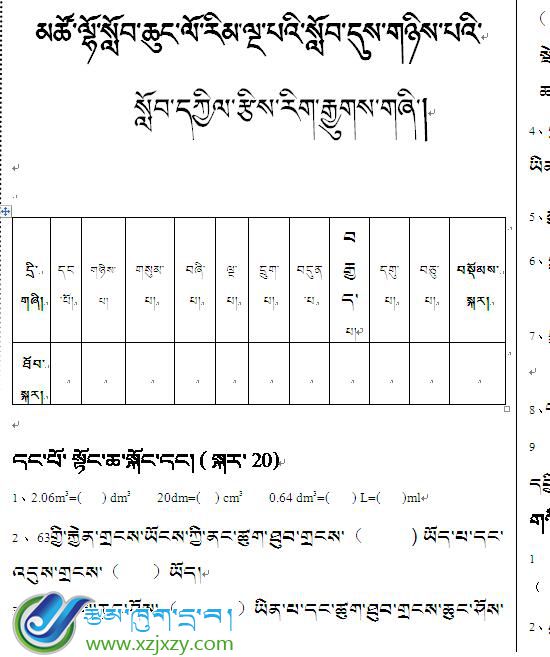 མཚོ་ལྷོ་སློབ་ཆུང་ལོ་རིམ་ལྔ་པའི་སློབ་དུས་གཉིས་པའི་
སློབ་དཀྱིལ་རྩིས་རིག་རྒྱུགས་གཞི།
དྲི་གཞི། དང་པོ། གཉིས་པ། གསུམ་པ། བཞི་པ། ལྔ་པ། དྲུག་པ། བདུན་པ། བརྒྱད་པ། དགུ་པ། བཅུ་པ། བསྡོམས་སྐར།
ཐོབ་སྐར།
དང་པོ་ སྟོང་ཆ་སྐོང་དང། ( སྐར་ 20)
1、2.06m³=( ) dm³ 20dm=( ) cm³ 0.64 dm³=( ) L=( )ml
2、 63གྱི་རྐྱེན་གྲངས་ཡོངས་ཀྱི་ནང་ཚུག་ཐུབ་གྲངས་（ ) ཡོད་པ་དང་
འདུས་གྲངས་（ ）ཡོད།
）ཡིན་པ་དང་ཚུག་ཐུབ་གྲངས་ཆུང་ཤོས་
ཆབ་ཁུག་དྲ་བ།
www.xzjxzy.com
4、
5、
6、
7、
8、
9
1
2、